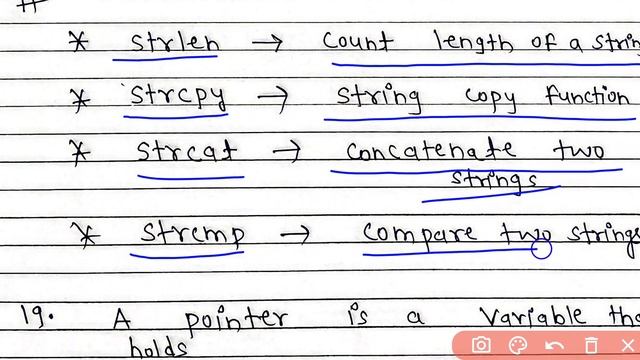 * strlen → count length of a strin
* strcpy → string copy function
* strcat → concatenate two
strings
* strcmp → compare two strings
19. A pointer is a variable tha
holds